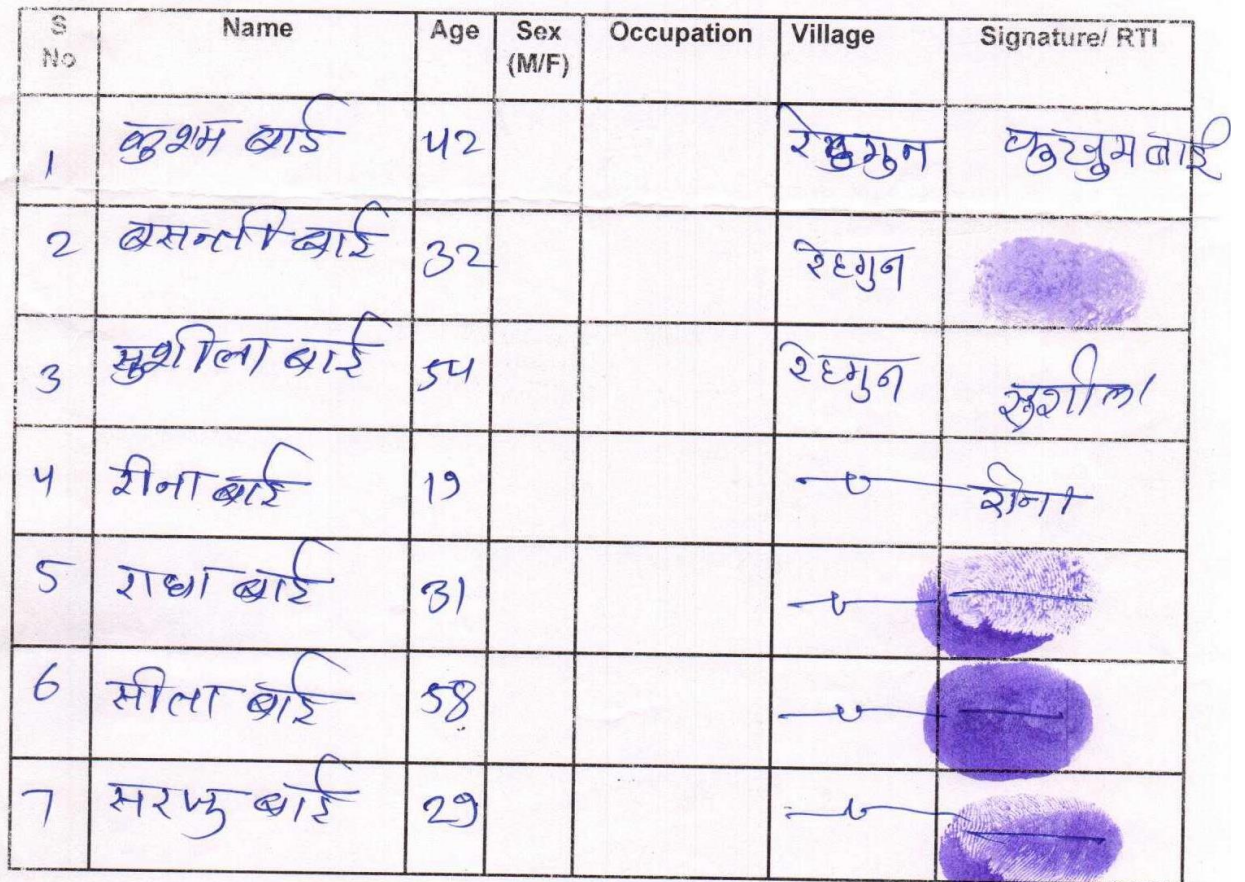 S No Name Age Sex (M/F) Occupation Village Signature/ RTI
1 कुशम बाई 42 कुसुम बाई
2 बसन्ती बाई 32 रेहगुन
3 सुशीला बाई 54 रेहगुन सुशीला
4 रीना बाई 19 रीना
5 राधा बाई 31
6 सीता बाई 58
7 सरजु बाई 29